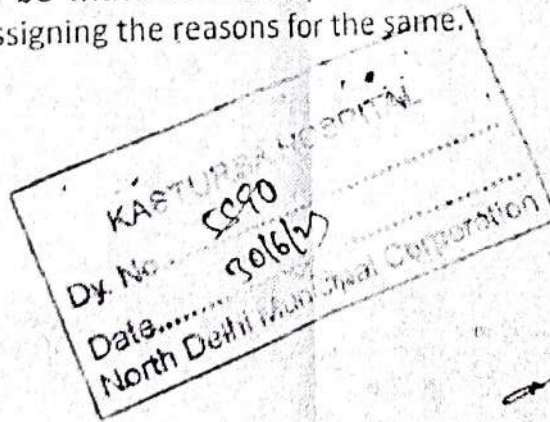 ssigning the reasons for the same.
KASTURBA HOSPITAL
Dy. No.
Date........
North Delhi Municipal Corporation